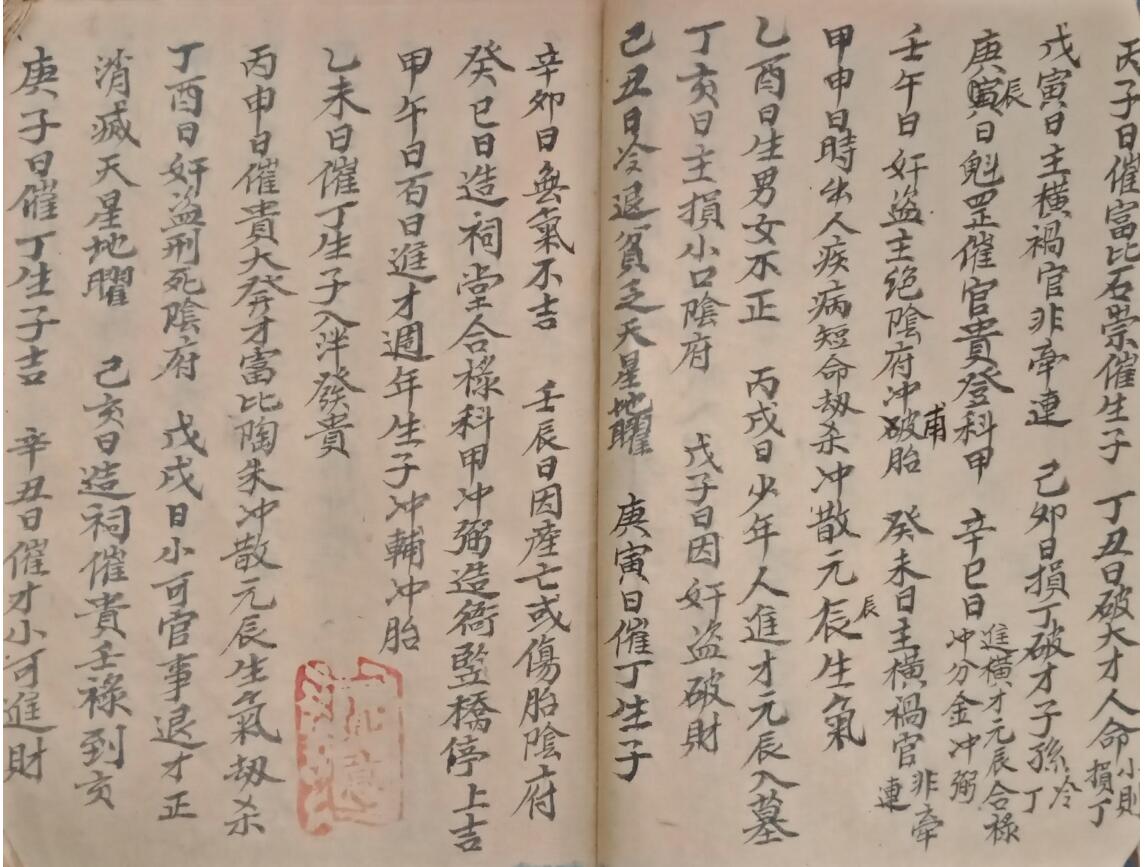 丙子日催富比石崇催生子　丁丑日破大才人命小則損丁
戊寅日主橫禍官非牽連　己卯日損丁破才子孫冷丁
庚寅辰日魁罡催官貴登科甲　辛巳日進橫才元辰合祿冲分金冲弼
壬午日奸盜主絕陰府冲破胎　癸未日主橫禍官非牽連
甫
甲申日時出人疾病短命劫杀冲散元辰生氣
辰
乙酉日生男女不正　丙戌日少年人進才元辰入墓
丁亥日主損小口陰府　戊子日因奸盜破財
己丑日冷退貧乏天星地曜　庚寅日催丁生子
辛卯日無氣不吉　壬辰日因產亡或傷胎陰府
癸巳日造祠堂合祿科甲冲弼造衙竪橋停上吉
甲午日百日進才週年生子冲輔冲胎
乙未日催丁生子入泮發貴
丙申日催貴大發才富比陶朱冲散元辰生氣劫杀
丁酉日奸盜刑死陰府　戊戌日小可官事退才正
消滅天星地曜　己亥日造祠催貴壬祿到亥
庚子日催丁生子吉　辛丑日催才小可進財